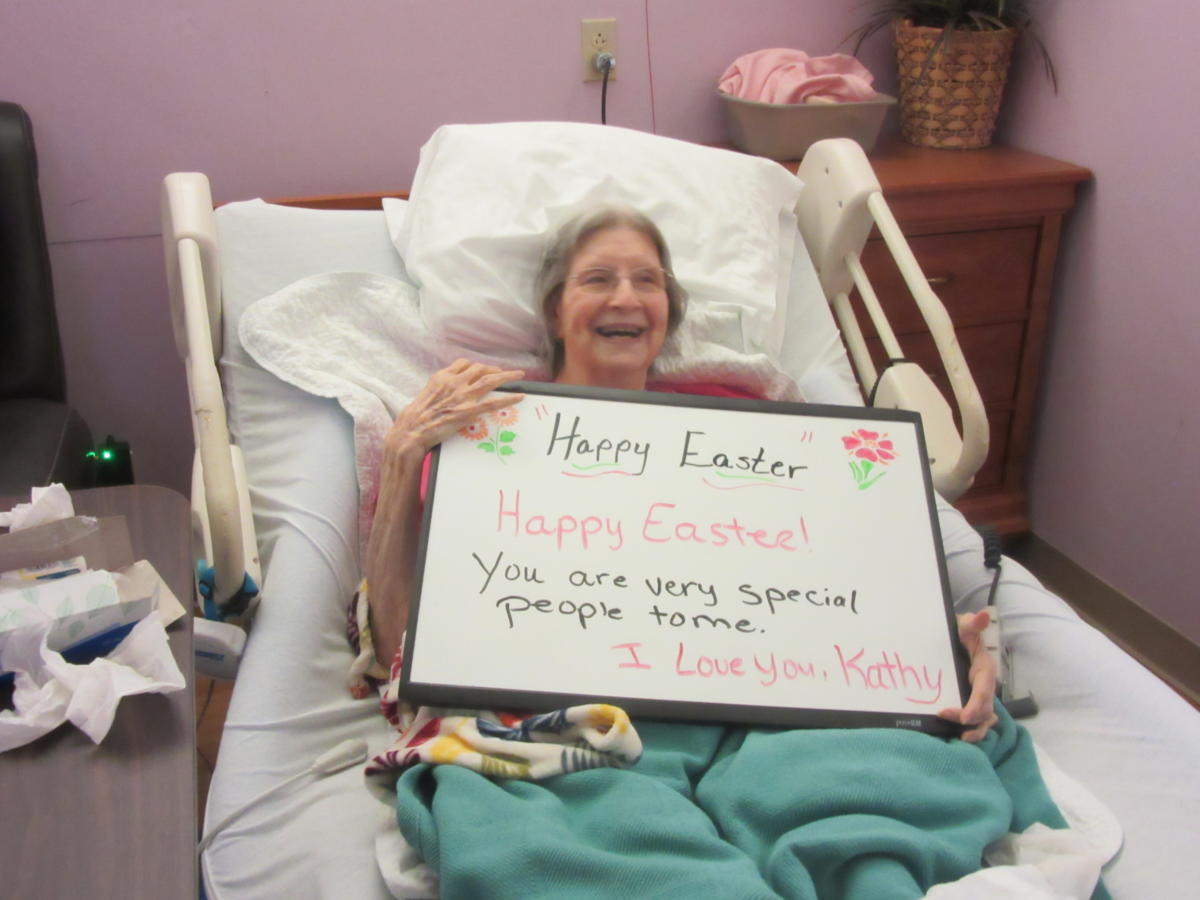 "Happy Easter"
Happy Easter!
You are very special
people to me.
I Love you, Kathy